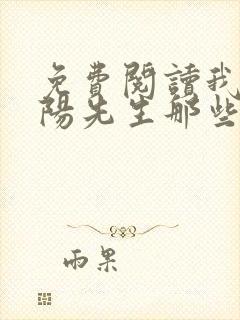 免費閱讀我
陽先生那些
雨果